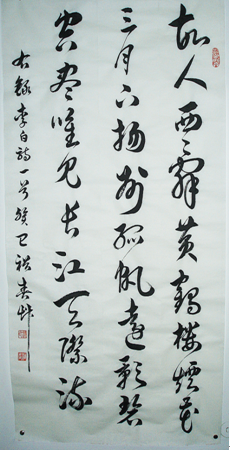 故人西辭黃鶴樓煙花
三月下揚州孤帆遠影碧
空盡唯見長江天際流
右錄李白詩一首癸巳